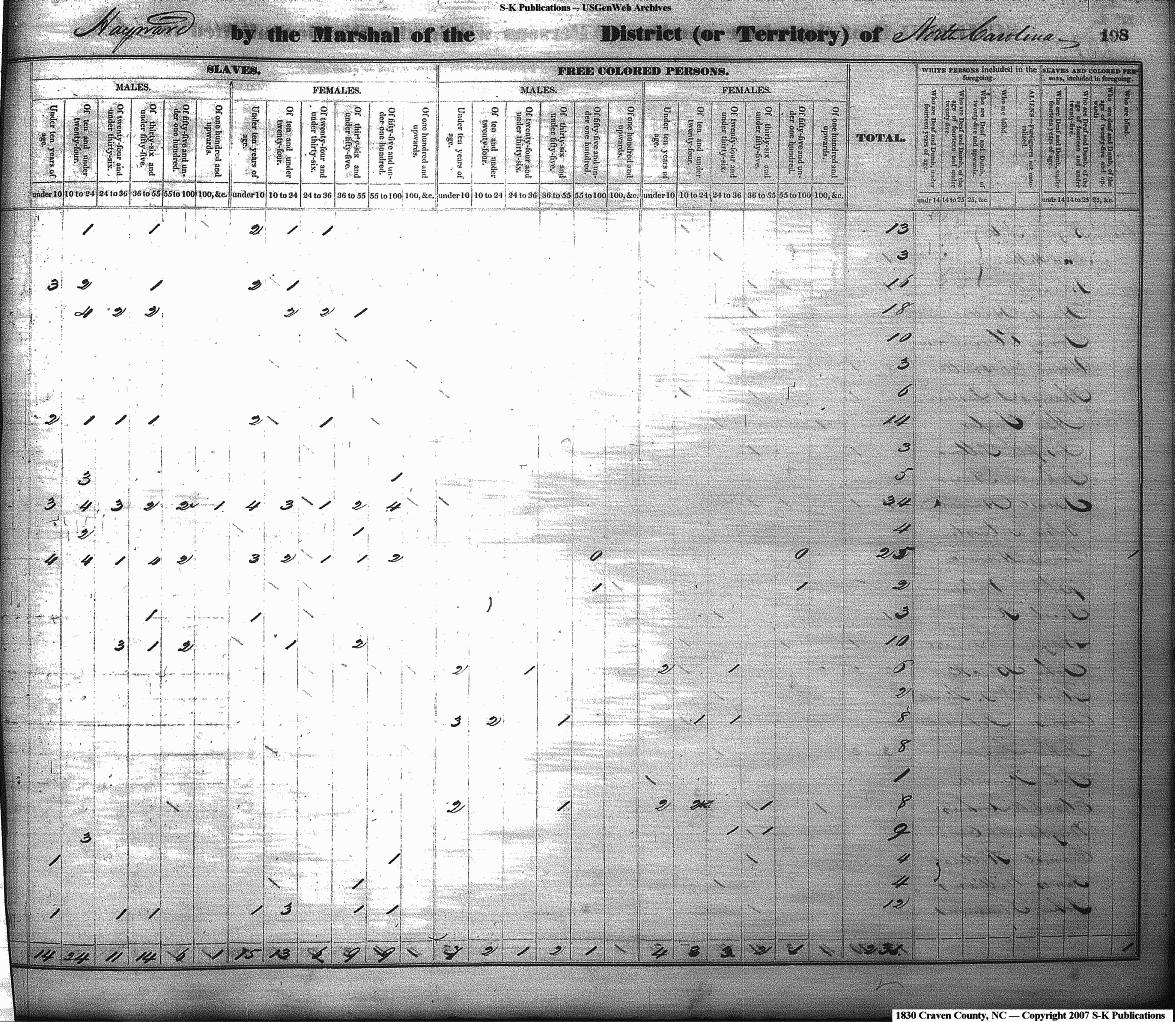 S-K Publications -- USGenWeb Archives
Hayward by the Marshal of the District (or Territory) of North Carolina 198
SLAVES. FREE COLORED PERSONS. TOTAL. WHITE PERSONS included in the foregoing. SLAVES AND COLORED PERSONS, included in foregoing.
MALES. FEMALES. MALES. FEMALES.
Under ten years of age. Of ten and under twenty-four. Of twenty-four and under thirty-six. Of thirty-six and under fifty-five. Of fifty-five and under one hundred. Of one hundred and upwards. Under ten years of age. Of ten and under twenty-four. Of twenty-four and under thirty-six. Of thirty-six and under fifty-five. Of fifty-five and under one hundred. Of one hundred and upwards. Under ten years of age. Of ten and under twenty-four. Of twenty-four and under thirty-six. Of thirty-six and under fifty-five. Of fifty-five and under one hundred. Of one hundred and upwards. Under ten years of age. Of ten and under twenty-four. Of twenty-four and under thirty-six. Of thirty-six and under fifty-five. Of fifty-five and under one hundred. Of one hundred and upwards.
under 10 10 to 24 24 to 36 36 to 55 55 to 100 100, &c. under 10 10 to 24 24 to 36 36 to 55 55 to 100 100, &c. under 10 10 to 24 24 to 36 36 to 55 55 to 100 100, &c. under 10 10 to 24 24 to 36 36 to 55 55 to 100 100, &c. undr 14 14 to 25 25, &c. undr 14 14 to 25 25, &c.
1 1 2 1 1 13
3
3 2 1 2 1 15
4 2 2 2 2 1 18
10
3
6
2 1 1 1 2 1 14
3
3 1 5
3 4 3 2 2 1 4 3 1 2 4 34
2 1 4
4 4 1 4 2 3 2 1 1 2 0 0 25 1
1 1 2
1 1 3
3 1 2 1 2 10
2 1 2 1 6
2
3 2 1 1 1 8
8
1
2 1 2 2 1 8
3 1 1 9
1 1 4
1 4
1 1 1 1 3 1 1 12
14 24 11 14 6 1 15 13 9 9 2 1 2 1 4 3 3 2 1
1830 Craven County, NC — Copyright 2007 S-K Publications